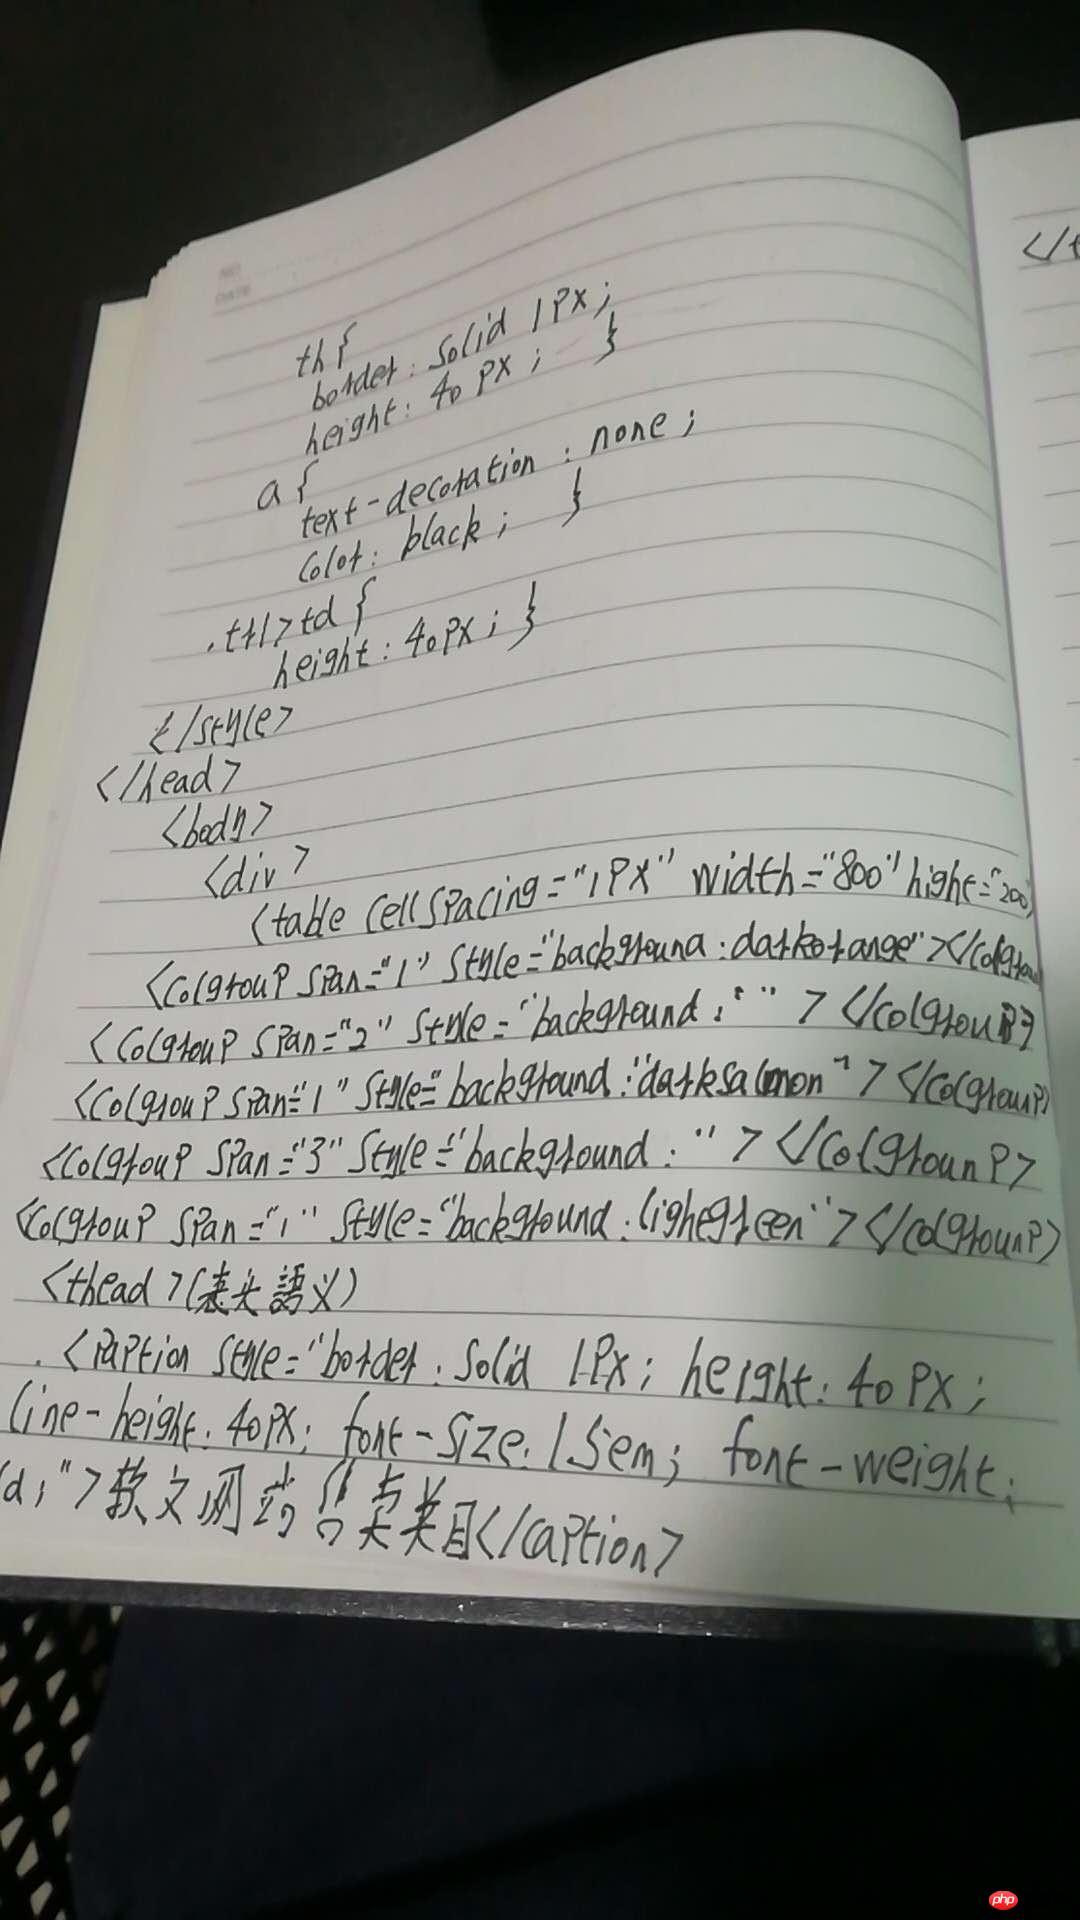 NO.
DATE
th{
border: solid 1px;
height: 40px; }
a{
text-decoration: none;
color: black; }
.tr1>td{
height: 40px; }
</style>
</head>
<body>
<div>
<table cellspacing="1px" width="800" hight="200"
<colgroup span="1" style="background:darkorange"></colgrou
<colgroup span="2" style="background: " " ></colgroup>
<colgroup span="1" style="background:"darksalmon"></colgroup>
<colgroup span="3" style="background: "></colgrounp>
<colgroup span="1" style="background:lighegreen"></colgrounp>
<thead>(表头語义)
<caption style="border:solid 1px; height:40px;
line-height:40px; font-size:1.5em; font-weight:
d;">软文 类目</caption>
</t
php